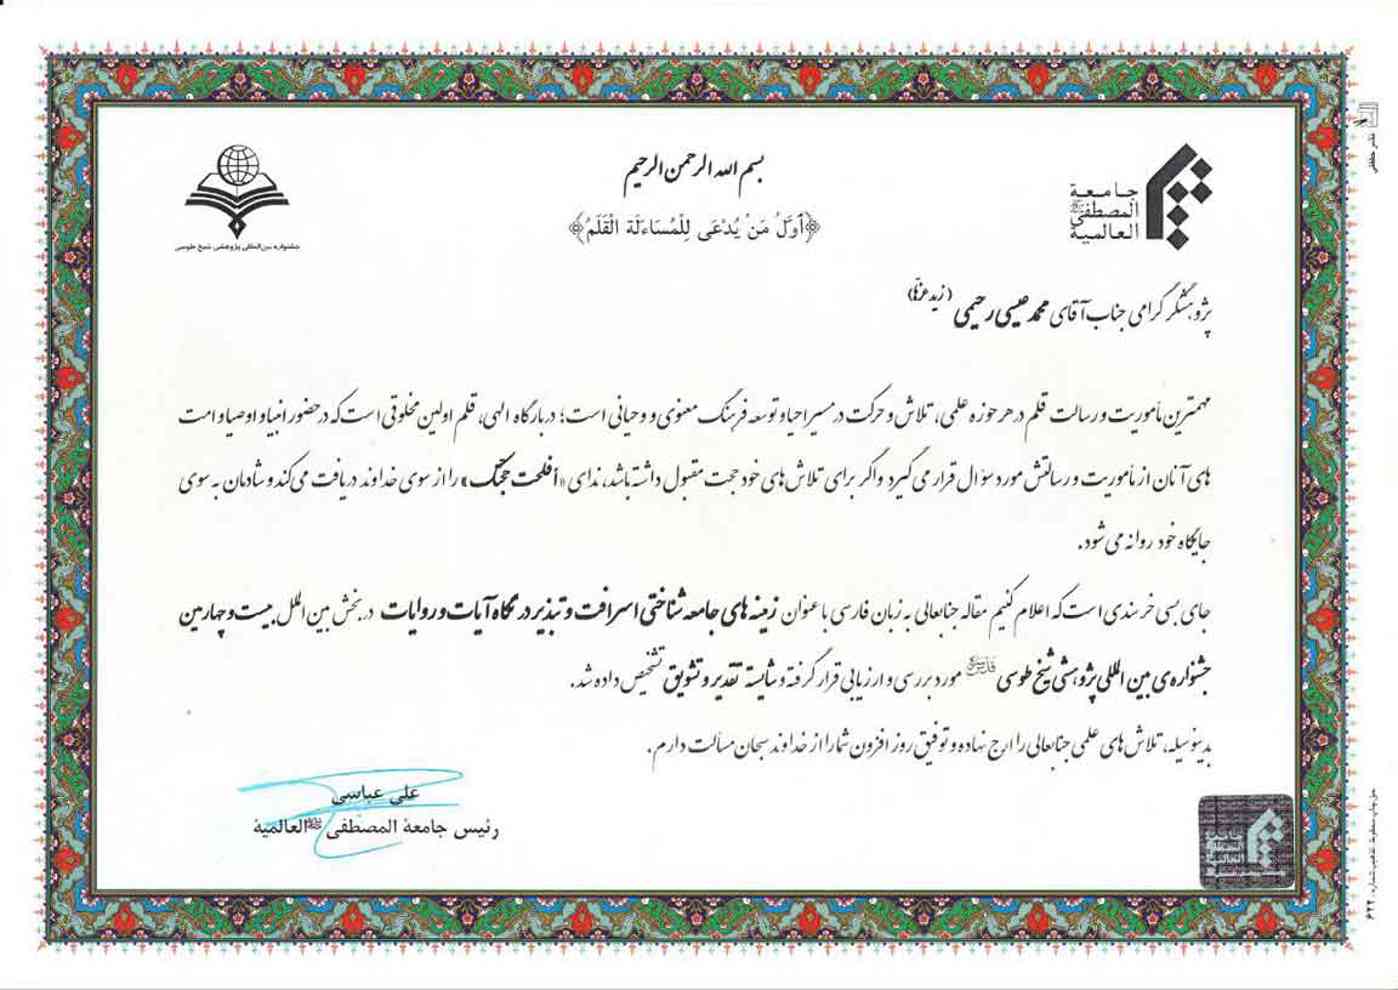 بسم الله الرحمن الرحیم
﴿أَوَّلُ مَنْ يُدْعَى لِلْمُسَاءَلَة القَلَمُ﴾
جامعة
المصطفی
العالمية
جشنواره بین‌المللی پژوهشی شیخ طوسی
پژوهشگر گرامی جناب آقای محمد عیسی رحیمی (زید عزّه)
مهمترین مأموریت و رسالت قلم در هر حوزه علمی، تلاش و حرکت در مسیر احیا و توسعه فرهنگ معنوی و وحیانی است؛ در بارگاه الهی، قلم اولین مخلوقی است که در حضور انبیا و اوصیا و امت
های آنان از مأموریت و رسالتش مورد سؤال قرار می گیرد و اگر برای تلاش های خود حجت مقبول داشته باشد، ندای «أفلحت حجتک» را از سوی خداوند دریافت می کند و شادمان به سوی
جایگاه خود روانه می شود.
جای بسی خرسندی است که اعلام کنیم مقاله جنابعالی به زبان فارسی با عنوان زمینه های جامعه شناختی اسرافت و تبذیر در نگاه آیات و روایات در بخش بین الملل بیست و چهارمین
جشنواره ی بین المللی پژوهشی شیخ طوسی مورد بررسی و ارزیابی قرار گرفته و شایسته تقدیر و تشویق تشخیص داده شد.
بدینوسیله، تلاش های علمی جنابعالی را ارج نهاده و توفیق روز افزون شما را از خداوند سبحان مسألت دارم.
علی عباسی
رئیس جامعة المصطفی العالمیة
جامعة
المصطفی
العالمية